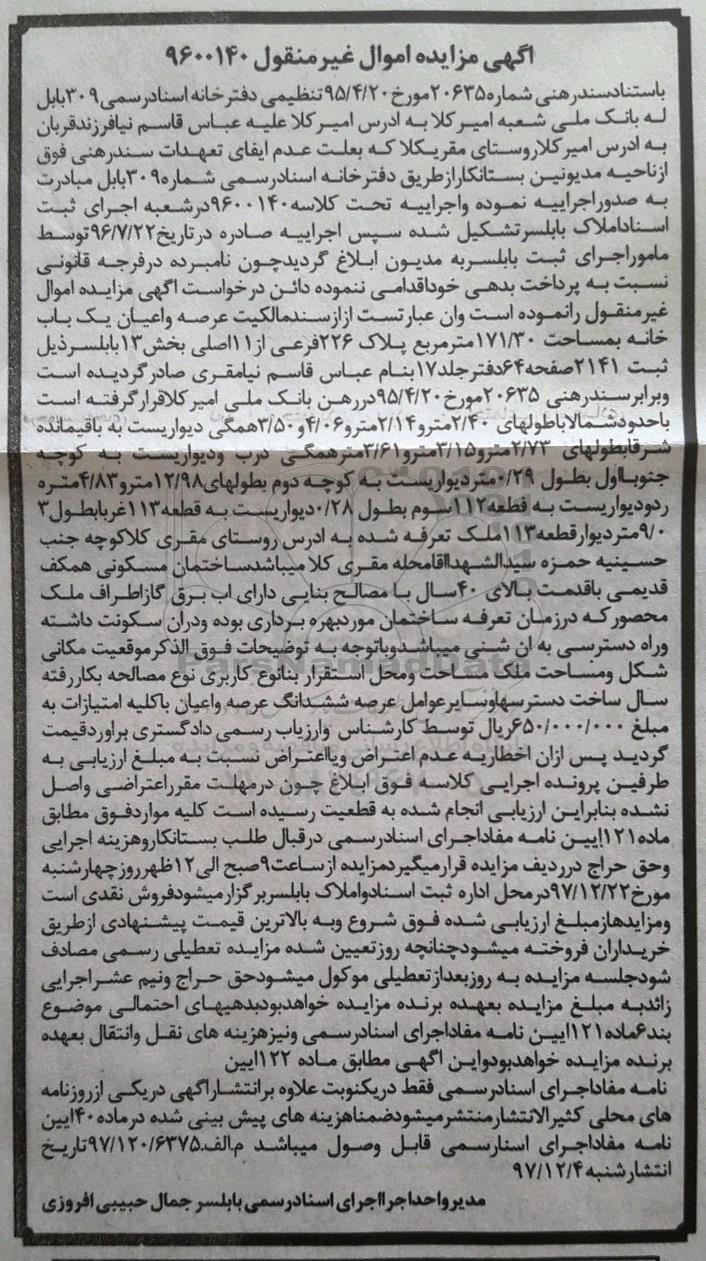 اگهی مزایده اموال غیرمنقول ۹۶۰۰۱۴۰
باستنادسندرهنی شماره۲۰۶۳۵مورخ۹۵/۴/۲۰تنظیمی دفترخانه اسنادرسمی۳۰۹بابل
له بانک ملی شعبه امیرکلا به ادرس امیرکلا علیه عباس قاسم نیافرزندقربان
به ادرس امیرکلاروستای مقریکلا که بعلت عدم ایفای تعهدات سندرهنی فوق
ازناحیه مدیونین بستانکارازطریق دفترخانه اسنادرسمی شماره۳۰۹بابل مبادرت
به صدوراجراییه نموده واجراییه تحت کلاسه۹۶۰۰۱۴۰درشعبه اجرای ثبت
اسناداملاک بابلسرتشکیل شده سپس اجراییه صادره درتاریخ۹۶/۷/۲۲توسط
ماموراجرای ثبت بابلسربه مدیون ابلاغ گردیدچون نامبرده درفرجه قانونی
نسبت به پرداخت بدهی خوداقدامی ننموده دائن درخواست اگهی مزایده اموال
غیرمنقول رانموده است وان عبارتست ازازسندمالکیت عرصه واعیان یک باب
خانه بمساحت ۱۷۱/۳۰مترمربع پلاک ۲۲۶فرعی از۱۱اصلی بخش۱۳بابلسرذیل
ثبت ۲۱۴۱صفحه۶۴دفترجلد۱۷بنام عباس قاسم نیامقری صادرگردیده است
وبرابرسندرهنی ۲۰۶۳۵مورخ۹۵/۴/۲۰دررهن بانک ملی امیرکلاقرارگرفته است
باحدودشمالاباطولهای ۲/۴۰مترو۲/۱۴مترو۴/۰۶و۳/۵۰همگی دیواریست به باقیمانده
شرقابطولهای ۲/۷۳مترو۳/۱۵مترو۳/۶۱مترهمگی درب ودیواریست به کوچه
جنوبااول بطول ۰/۲۹متردیواریست به کوچه دوم بطولهای۱۲/۹۸مترو۴/۸۳متره
ردودیواریست به قطعه۱۱۲سوم بطول ۰/۲۸دیواریست به قطعه۱۱۳غربابطول۳
۹/۰متردیوارقطعه۱۱۳ملک تعرفه شده به ادرس روستای مقری کلاکوچه جنب
حسینیه حمزه سیدالشهدااقامحله مقری کلا میباشدساختمان مسکونی همکف
قدیمی باقدمت بالای ۴۰سال با مصالح بنایی دارای اب برق گازاطراف ملک
محصورکه درزمان تعرفه ساختمان موردبهره برداری بوده ودران سکونت داشته
وراه دسترسی به ان شنی میباشدوباتوجه به توضیحات فوق الذکرموقعیت مکانی
شکل ومساحت ملک مساحت ومحل استقرار بنانوع کاربری نوع مصالحه بکاررفته
سال ساخت دسترسهاوسایرعوامل عرصه ششدانگ عرصه واعیان باکلیه امتیازات به
مبلغ ۶۵۰/۰۰۰/۰۰۰ریال توسط کارشناس وارزیاب رسمی دادگستری براوردقیمت
گردید پس ازان اخطاریه عدم اعتراض ویااعتراض نسبت به مبلغ ارزیابی به
طرفین پرونده اجرایی کلاسه فوق ابلاغ چون درمهلت مقرراعتراضی واصل
نشده بنابراین ارزیابی انجام شده به قطعیت رسیده است کلیه مواردفوق مطابق
ماده۱۲۱ایین نامه مفاداجرای اسنادرسمی درقبال طلب بستانکاروهزینه اجرایی
وحق حراج درردیف مزایده قرارمیگیردمزایده ازساعت۹صبح الی۱۲ظهرروزچهارشنبه
مورخ۹۷/۱۲/۲۲درمحل اداره ثبت اسنادواملاک بابلسربرگزارمیشودفروش نقدی است
ومزایدهازمبلغ ارزیابی شده فوق شروع وبه بالاترین قیمت پیشنهادی ازطریق
خریداران فروخته میشودچنانچه روزتعیین شده مزایده تعطیلی رسمی مصادف
شودجلسه مزایده به روزبعدازتعطیلی موکول میشودحق حراج ونیم عشراجرایی
زائدبه مبلغ مزایده بعهده برنده مزایده خواهدبودبدهیهای احتمالی موضوع
بند۶ماده۱۲۱ایین نامه مفاداجرای اسنادرسمی ونیزهزینه های نقل وانتقال بعهده
برنده مزایده خواهدبودواین اگهی مطابق ماده ۱۲۲ایین
نامه مفاداجرای اسنادرسمی فقط دریکنوبت علاوه برانتشاراگهی دریکی ازروزنامه
های محلی کثیرالانتشارمنتشرمیشودضمناهزینه های پیش بینی شده درماده۴۰ایین
نامه مفاداجرای اسنارسمی قابل وصول میباشد م.الف.۹۷/۱۲۰/۶۳۷۵تاریخ
انتشارشنبه۹۷/۱۲/۴
مدیرواحداجرااجرای اسنادرسمی بابلسر جمال حبیبی افروزی
ParsNamadData